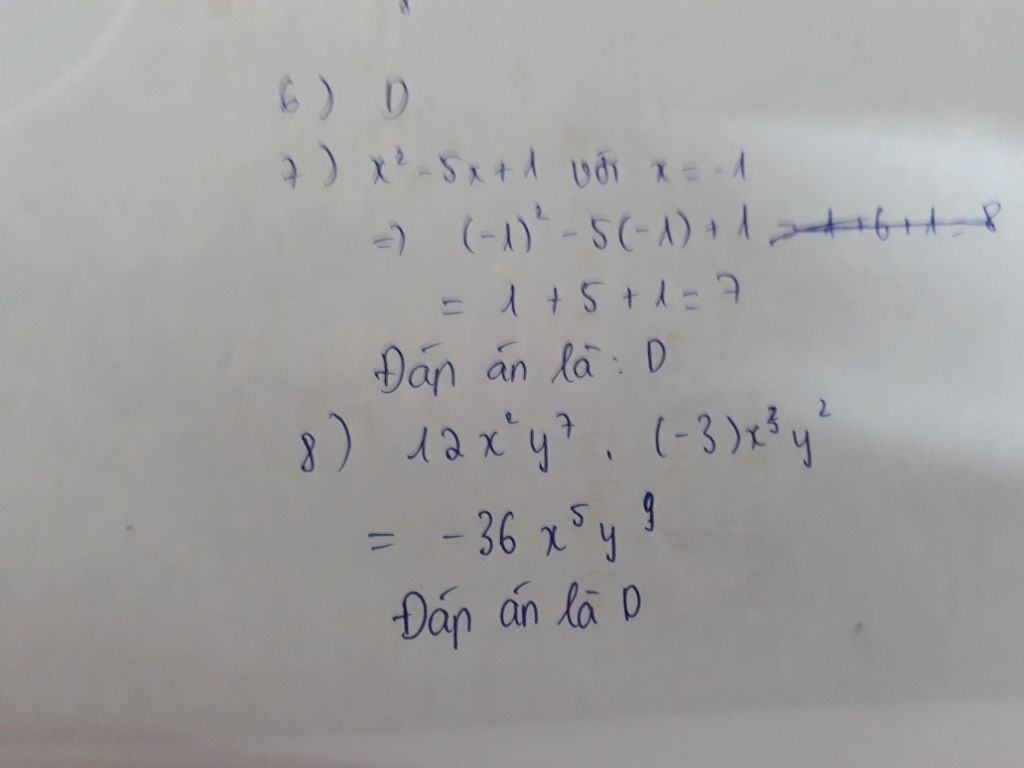 6) D
7) x² - 5x + 1 với x = -1
=> (-1)² - 5(-1) + 1 = 1 + 6 + 1 = 8
= 1 + 5 + 1 = 7
Đáp án là: D
8) 12x²y⁷ . (-3)x³y²
= -36x⁵y⁹
Đáp án là D